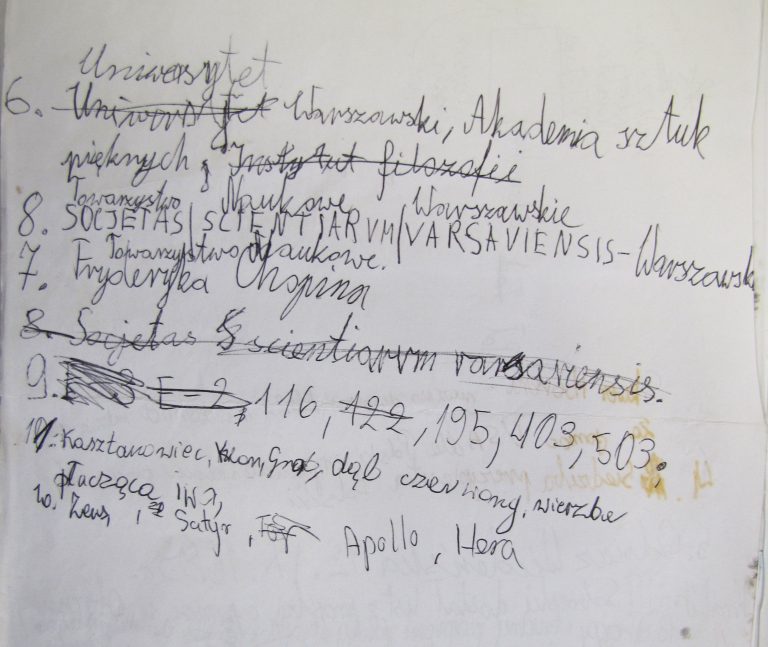 Uniwersytet
6. Uniwersytet Warszawski, Akademia sztuk
pięknych, Instytut filozofii
Towarzystwo Naukowe Warszawskie
8. SOCJETAS/SCIENTJARVM/VARSAVIENSIS-Warszawski
Towarzystwo Naukowe.
7. Fryderyka Chopina
8. Socjetas Sscientiarvm varsaviensis.
9. E-2, 116, 122, 195, 403, 503.
11. Kasztanowiec, klon, grab, dąb czerwiony, wierzba
płacząca,
10. Zeus, Satyr, Apollo, Hera